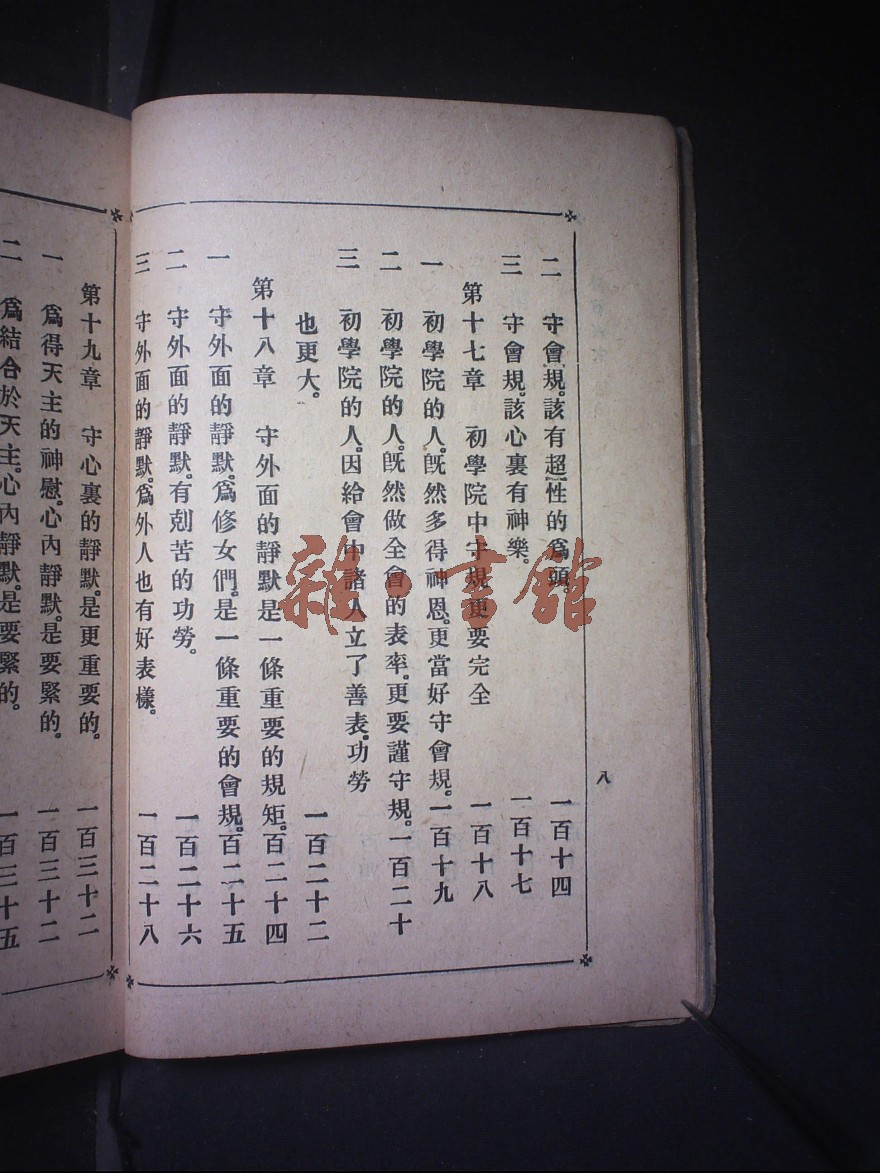 八
二　守會規。該有超性的爲頭。　一百十四
三　守會規。該心裏有神樂。　一百十七
第十七章　初學院中守規更要完全　一百十八
一　初學院的人。旣然多得神恩。更當好守會規。一百十九
二　初學院的人。旣然做全會的表率。更要謹守規。一百二十
三　初學院的人。因給會中諸人立了善表。功勞
也更大。　一百二十二
第十八章　守外面的靜默是一條重要的規矩。百二十四
一　守外面的靜默。爲修女們。是一條重要的會規。百二十五
二　守外面的靜默。有剋苦的功勞。　一百二十六
三　守外面的靜默。爲外人也有好表樣。　一百二十八
第十九章　守心裏的靜默。是更重要的。　一百三十二
一　爲得天主的神慰。心內靜默。是要緊的。　一百三十二
二　爲結合於天主。心內靜默。是要緊的。　一百三十五
雜·書館